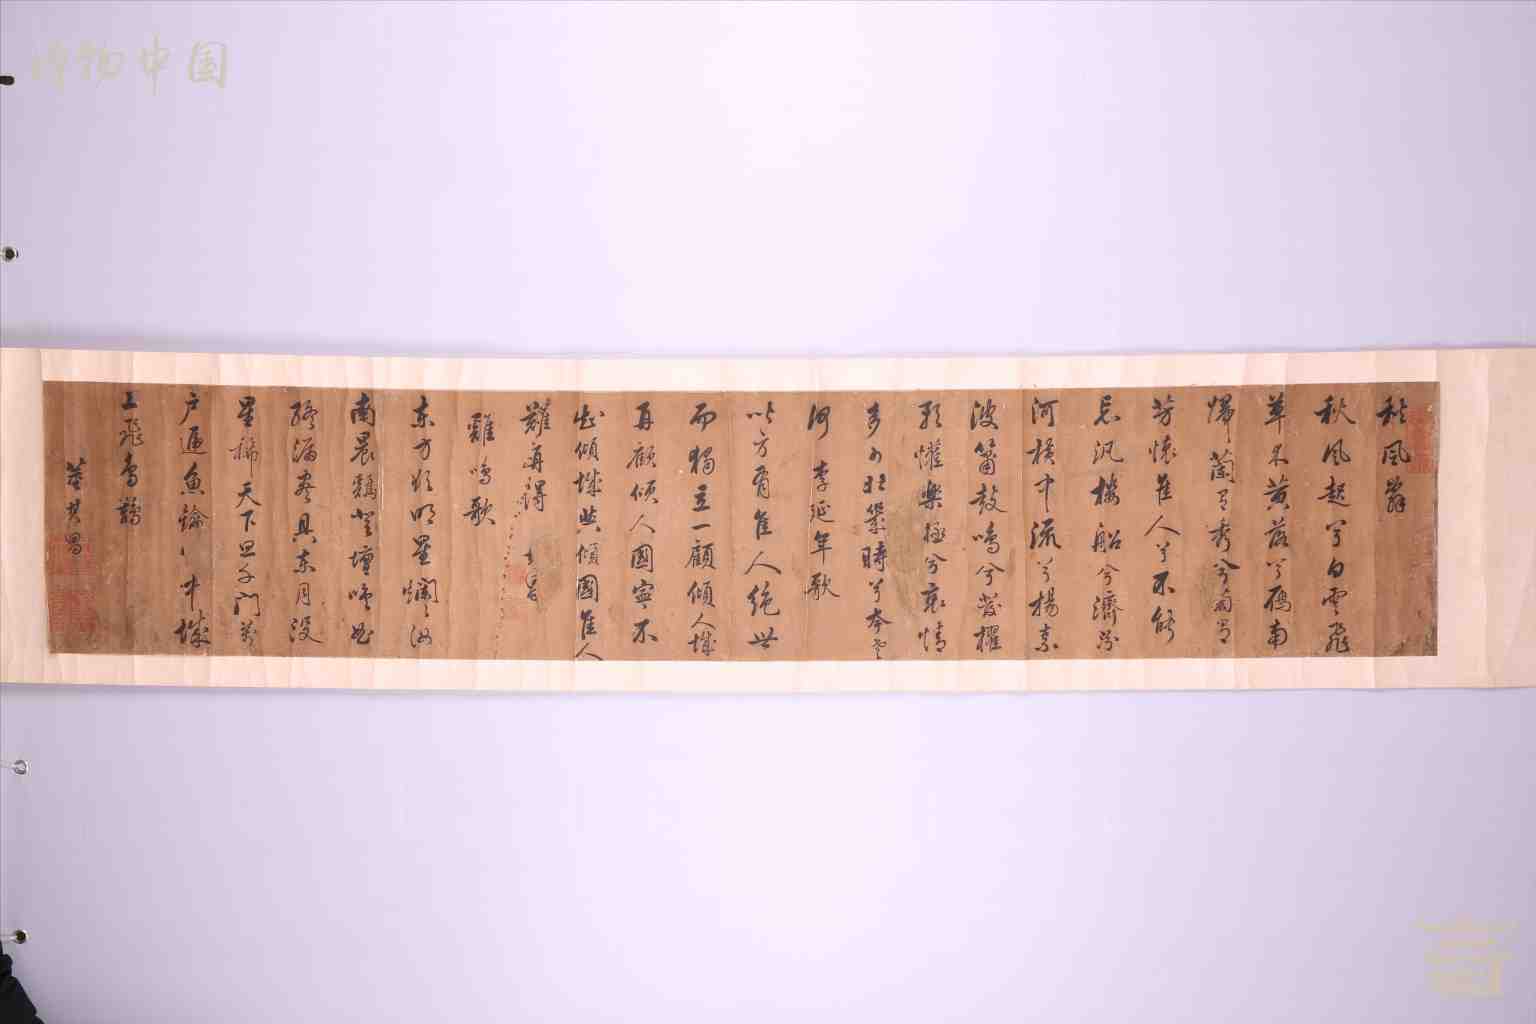 博物中国
秋風辭
秋風起兮白雲飛
草木黃落兮雁南
歸蘭有秀兮菊有
芳懷佳人兮不能
忘汎樓船兮濟汾
河橫中流兮揚素
波簫鼓鳴兮發櫂
歌懽樂極兮哀情
多少壯幾時兮奈老
何 李延年歌
北方有佳人絕世
而獨立一顧傾人城
再顧傾人國寧不
知傾城與傾國佳人
難再得
雞鳴歌
東方欲明星爛爛汝
南晨鷄登壇喚曲
終漏盡具東月沒
星稀天下旦千門萬
戶遞魚鑰 中城
上飛烏鵲
董其昌